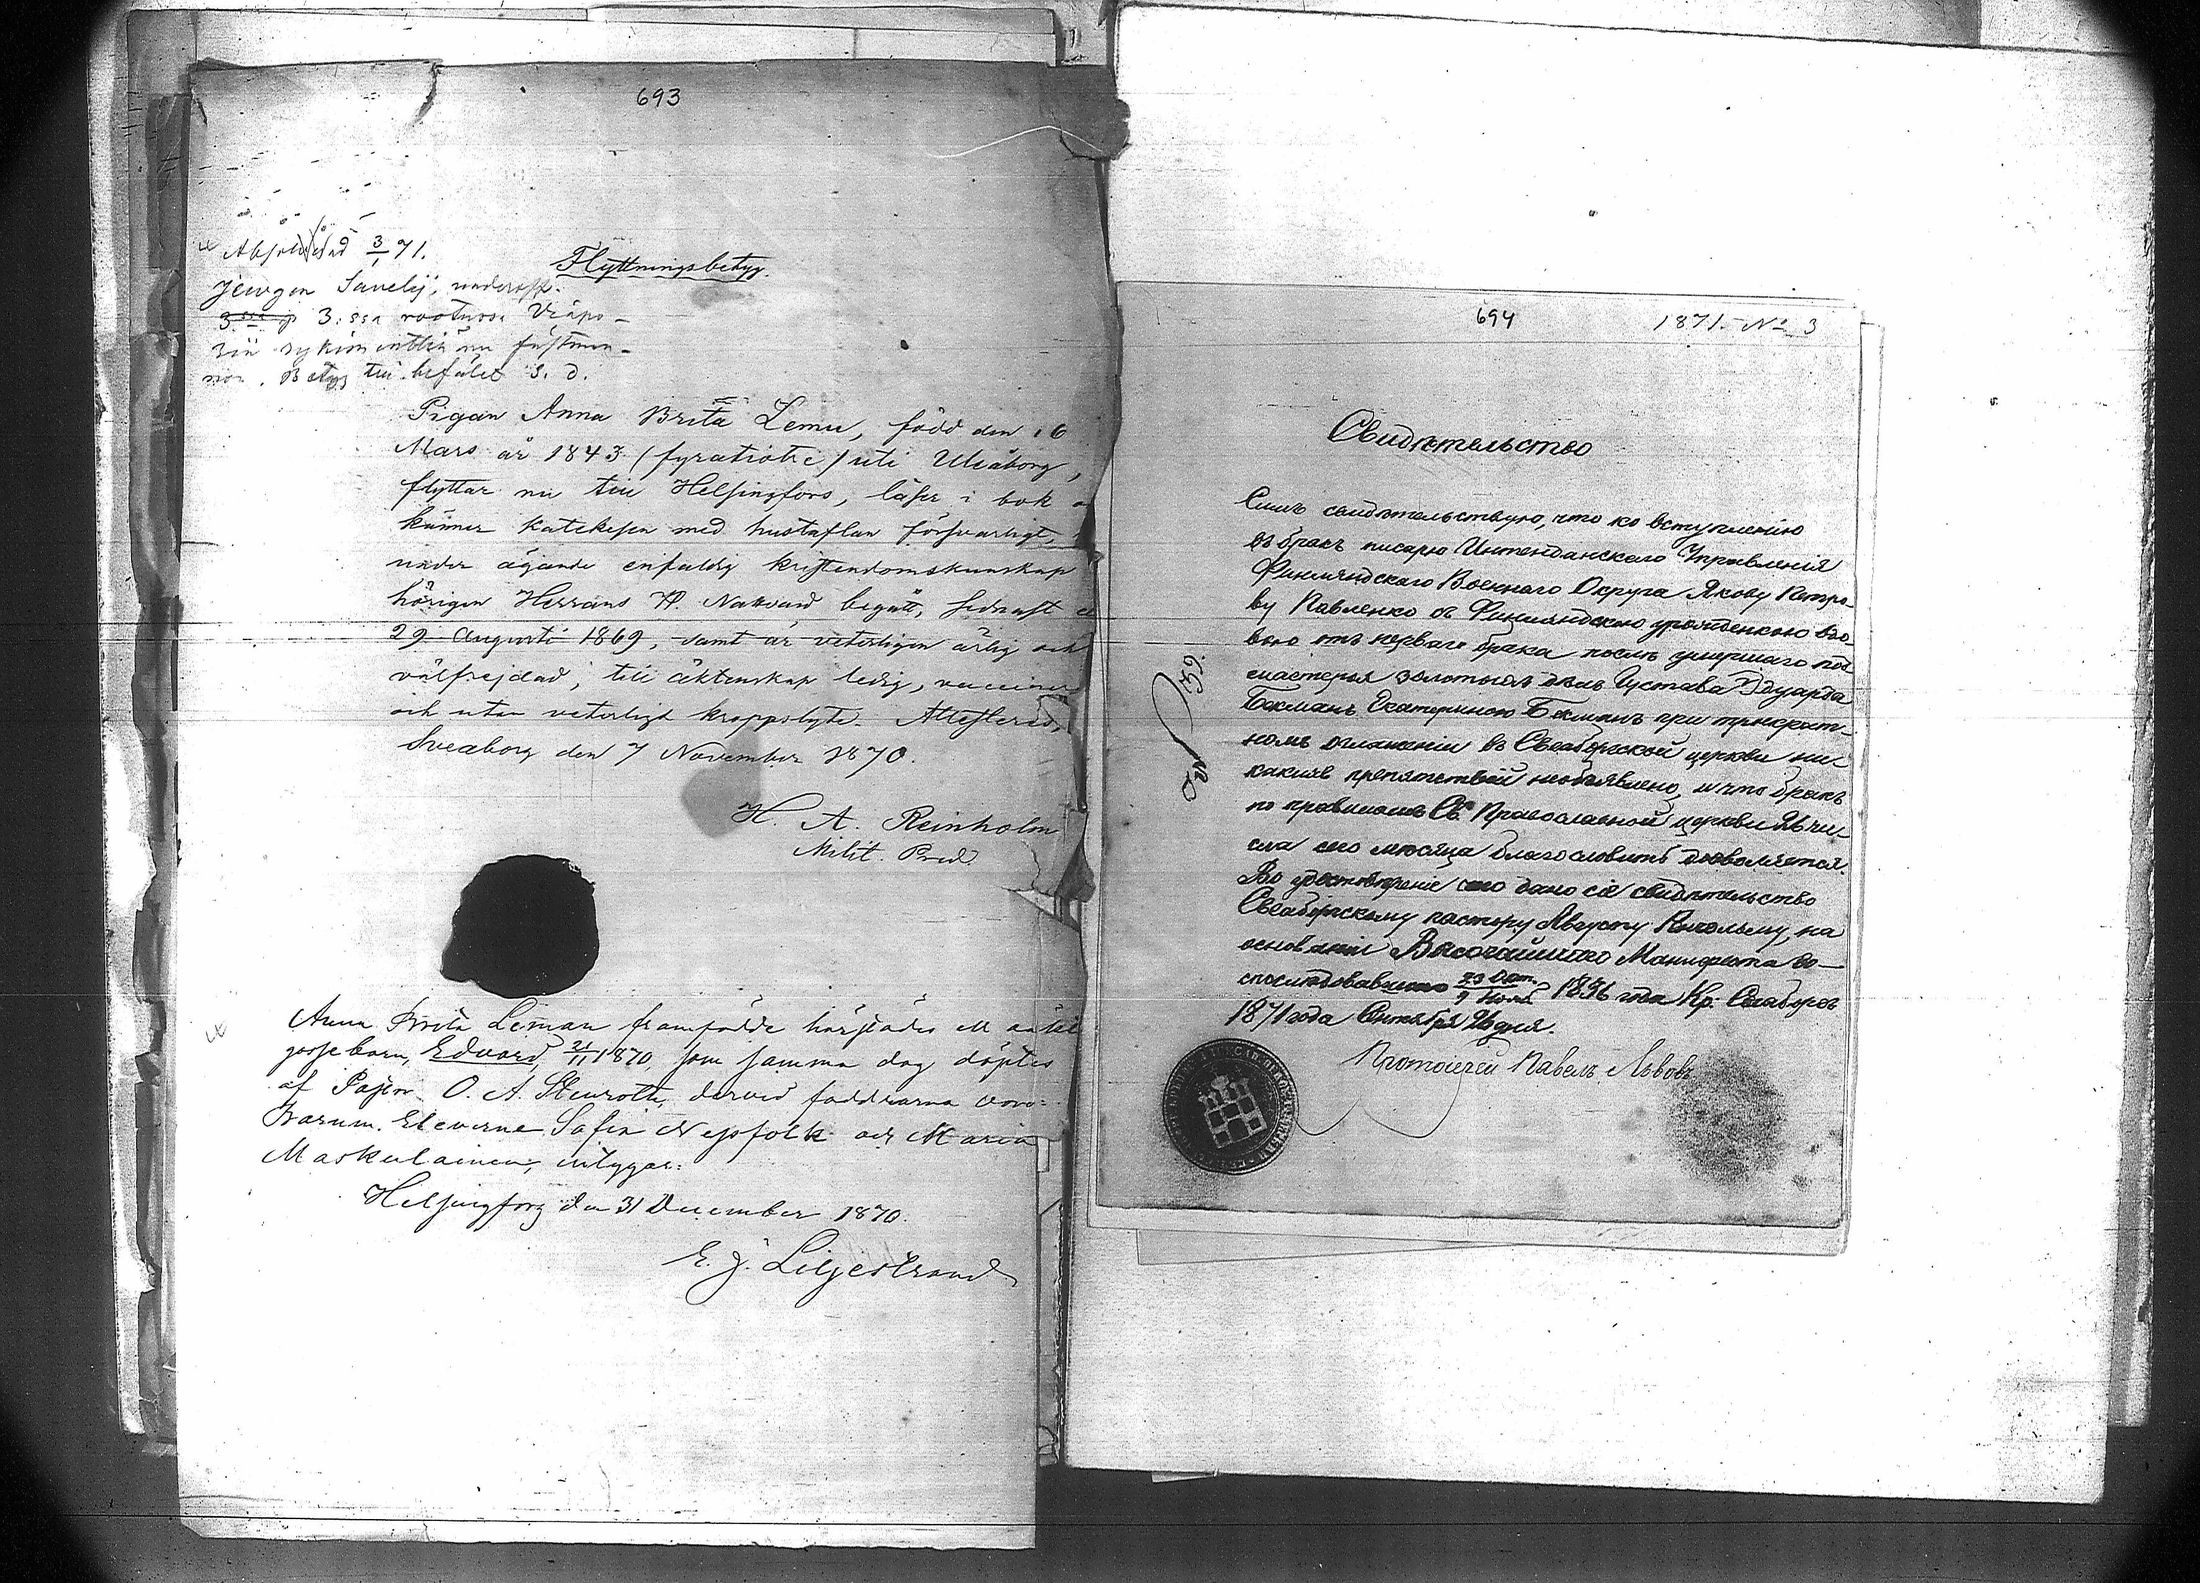 693
Absolverad 3/1 71.
Jewgen Savelij, underoff.
3:ssa rootussa Viapo-
rin fästmö
Betyg till befälet s. d.
Flyttningsbetyg.
Pigan Anna Brita Lemu, född den 16
Mars år 1843 (fyratiotre) uti Uleåborg,
flyttar nu till Helsingfors, läser i bok
känner katekesen med hustaflan försvarligt,
under ägande enfaldig kristendomskunskap
hörigen Herrans H. Nattvard begått, sednast
29 Augusti 1869, samt är veterligen ärlig och
välfrejdad, till äktenskap ledig, vaccinerad
och utan veterligt kroppslyte. Attesterad,
Sveaborg den 7 November 1870.
H. A. Reinholm
Milit. Pred.
Anna Brita Leman framfödde härstädes ett oäkta
gossebarn, Edvard, 21/11 1870, som samma dag döptes
af Pastor O. A. Stenroth, dervid faddrarna voro:
Barnm. Eleverne Sofia Nejsfolk och Maria
Maskulainen, intygar:
Helsingfors den 31 December 1870.
E. J. Liljestrand
694
1871. No 3
Свидѣтельство
Симъ свидѣтельствую, что ко вступленію
въ бракъ писарю Интенданскаго Управленія
Финляндскаго Военнаго Округа Якову Петро-
ву Павленко съ Финляндскою уроженкою вдо-
вою отъ перваго брака послѣ умершаго под-
мастерья золотыхъ дѣлъ Густава Эдуарда
Бекманъ Екатериною Бекманъ при троекрат-
номъ оглашеніи въ Свеаборгской церкви ни-
какихъ препятствій необъявлено, и что бракъ
по правиламъ Св. Православной церкви чи-
сла сего мѣсяца благословить дозволяется.
Во удостовѣреніе сего дано сіе свидѣтельство
Свеаборгскому пастору Августу Рингольму, на
основаніи Высочайшаго Манифеста во-
спослѣдовавшаго 23 Окт. 1836 года Кр. Свеаборгъ
1871 года Сентября 16 дня.
Протоіерей Павелъ Львовъ